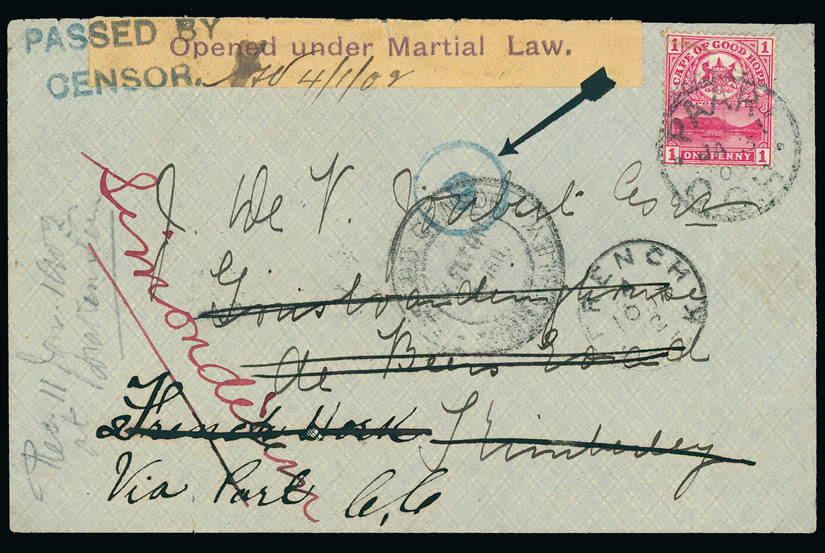 PASSED BY
CENSOR.
Opened under Martial Law.
4/1/02
1 CAPE OF GOOD HOPE 1
1 ONE PENNY 1
PAARL
JA
J. De V. Joubert Esq
de Beers Road
Kimberley
French Hoek
Via Paarl
C.C
Simondium
FRENCH
Rec. 11 Jan. 1902
at